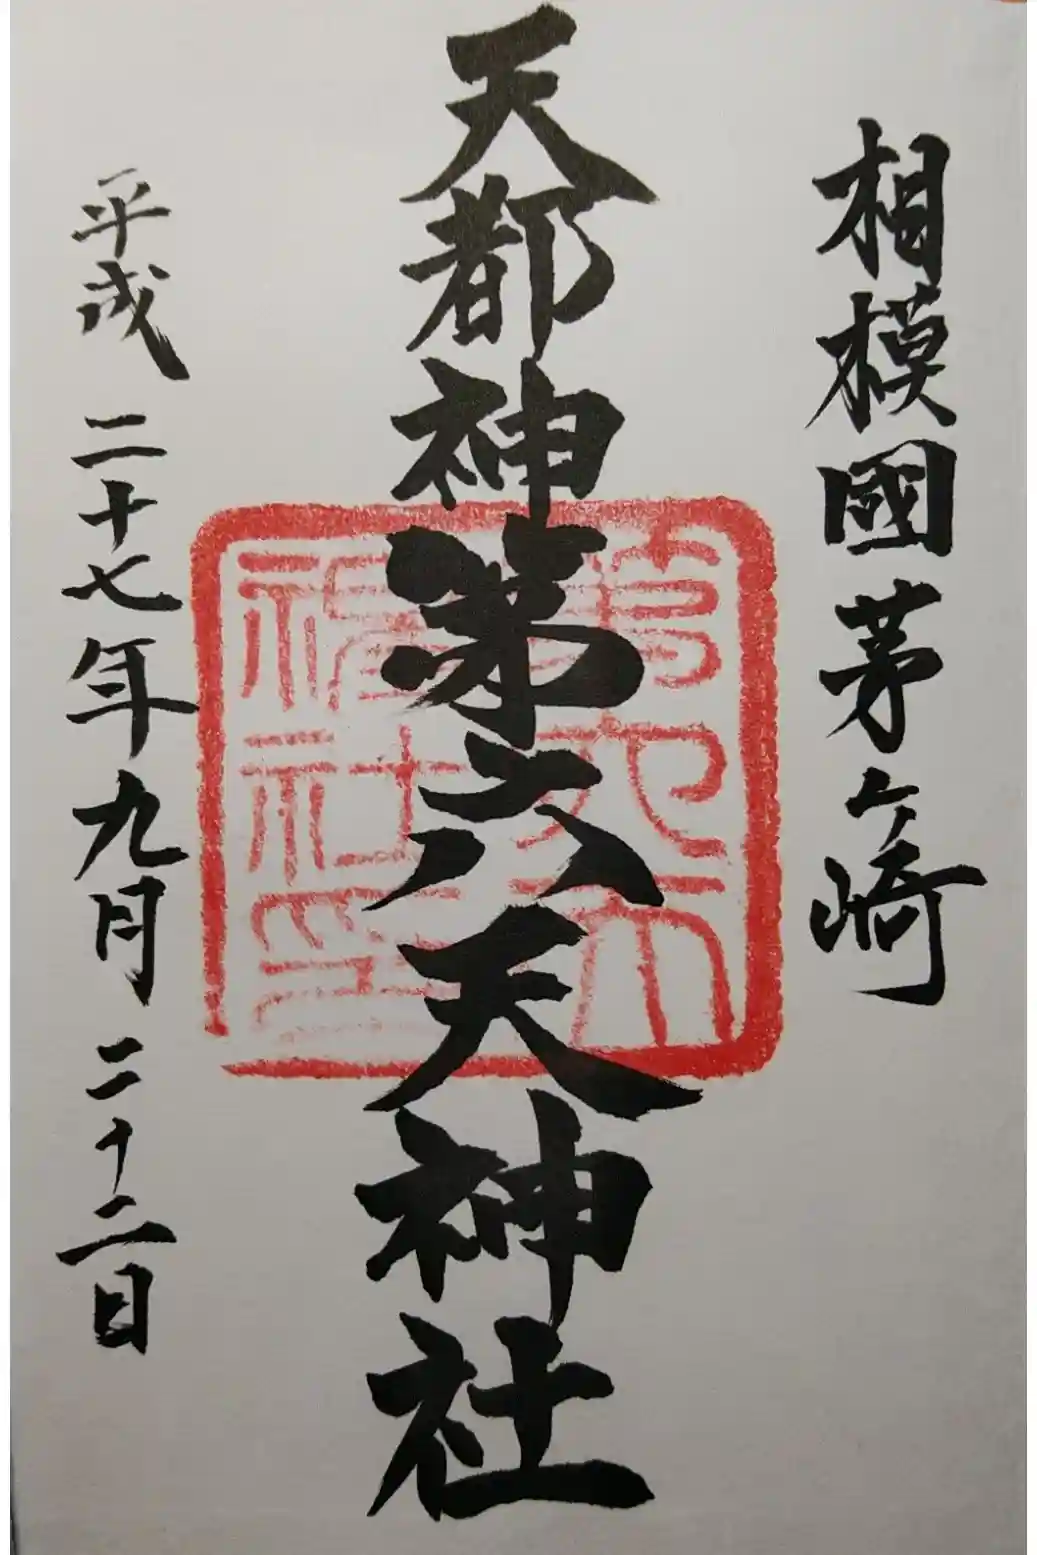 相模國茅ヶ崎
天都神第六天神社
平成二十七年九月二十二日